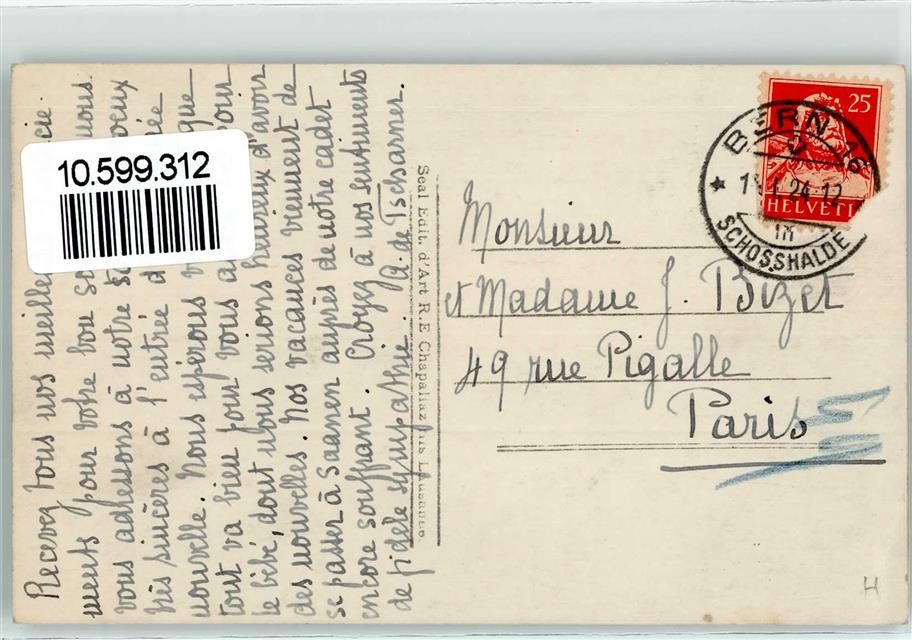 Recevez tous nos meille cie
ments pour votre bon so nous
vous adressons à notre voeux
très sincères à l'entrée d ée
nouvelle. Nous espérons v que
tout va bien pour vous a pour
le bébé, dont nous serions heureux d'avoir
des nouvelles. Nos vacances viennent de
se passer à Saanen auprès de notre cadet
encore souffrant. Croyez à nos sentiments
de fidèle sympathie. de Tscharner.
Seal Edit. d'Art R. E. Chapallaz fils Lausanne.
10.599.312
25
HELVETI
BERN 16
24-12
SCHOSSHALDE
Monsieur
et Madame J. Bizet
49 rue Pigalle
Paris
H